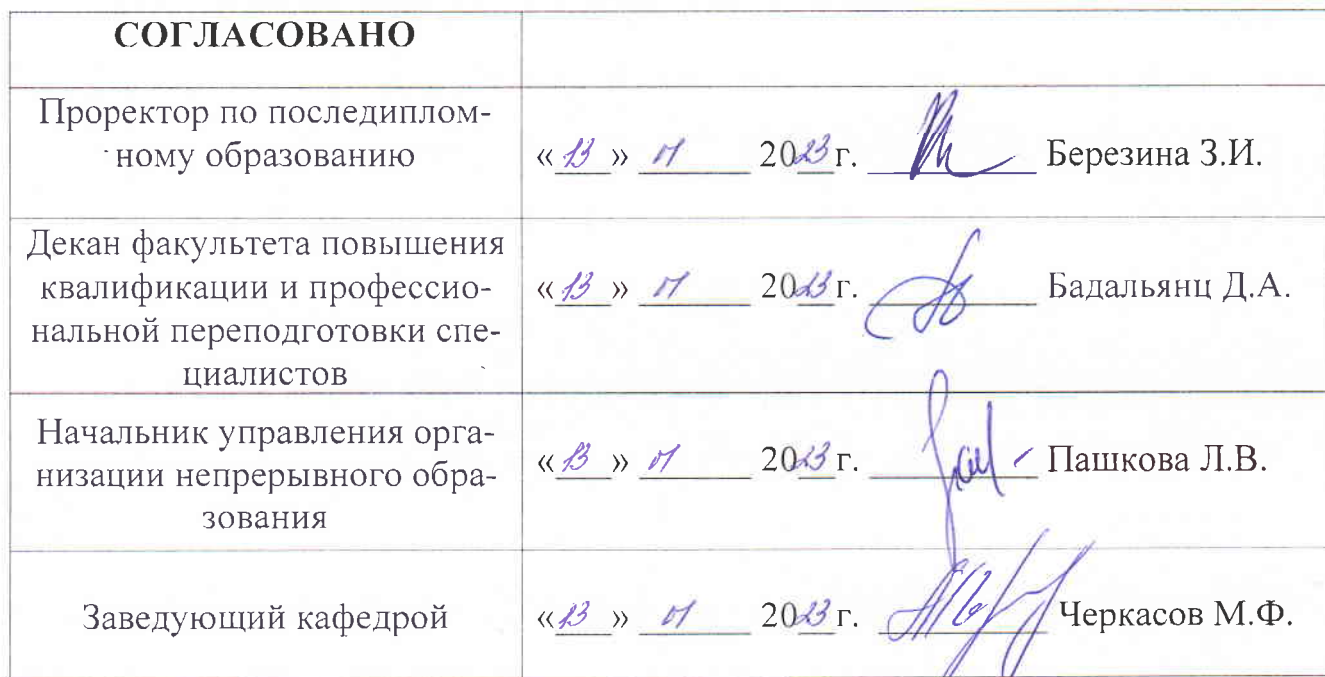 СОГЛАСОВАНО
Проректор по последиплом-
ному образованию
«13» 01 2023 г. Березина З.И.
Декан факультета повышения
квалификации и профессио-
нальной переподготовки спе-
циалистов
«13» 01 2023 г. Бадальянц Д.А.
Начальник управления орга-
низации непрерывного обра-
зования
«13» 01 2023 г. Пашкова Л.В.
Заведующий кафедрой
«13» 01 2023 г. Черкасов М.Ф.